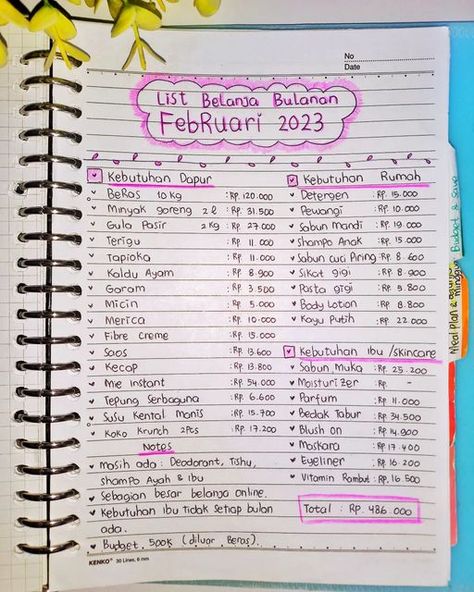 No
Date
List Belanja Bulanan
Februari 2023
Kebutuhan Dapur
Beras 10 kg : Rp. 120.000
Minyak goreng 2 l : Rp. 31.500
Gula Pasir 2 kg : Rp. 27.000
Terigu : Rp. 11.000
Tapioka : Rp. 11.000
Kaldu Ayam : Rp. 8.900
Garam : Rp. 3.500
Micin : Rp. 5.000
Merica : Rp. 10.000
Fibre Creme : Rp. 15.000
Saos : Rp. 13.600
Kecap : Rp. 13.800
Mie Instant : Rp. 54.000
Tepung Serbaguna : Rp. 6.600
Susu Kental Manis : Rp. 15.700
Koko Krunch 2Pcs : Rp. 17.200
Notes
Masih ada : Deodorant, Tishu,
Shampo Ayah & Ibu
Sebagian besar belanja online.
Kebutuhan Ibu tidak setiap bulan
ada.
Budget 500K (diluar Beras).
Kebutuhan Rumah
Detergen : Rp. 15.000
Pewangi : Rp. 10.000
Sabun Mandi : Rp. 19.000
Shampo Anak : Rp. 15.000
Sabun Cuci Piring : Rp. 8.600
Sikat gigi : Rp. 8.900
Pasta gigi : Rp. 9.800
Body Lotion : Rp. 8.800
Kayu Putih : Rp. 22.000
Kebutuhan Ibu / Skincare
Sabun Muka : Rp. 25.200
Moisturizer : Rp. -
Parfum : Rp. 11.000
Bedak Tabur : Rp. 34.500
Blush on : Rp. 14.900
Maskara : Rp. 17.400
Eyeliner : Rp. 16.200
Vitamin Rambut : Rp. 16.500
Total : Rp. 486.000
KENKO 30 Lines, 6 mm
Budget & Save
Meal Plan &
Minggu